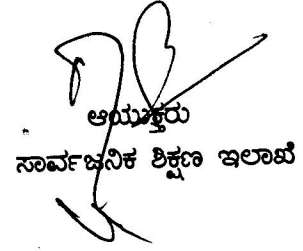 ಆಯುಕ್ತರು
ಸಾರ್ವಜನಿಕ ಶಿಕ್ಷಣ ಇಲಾಖೆ